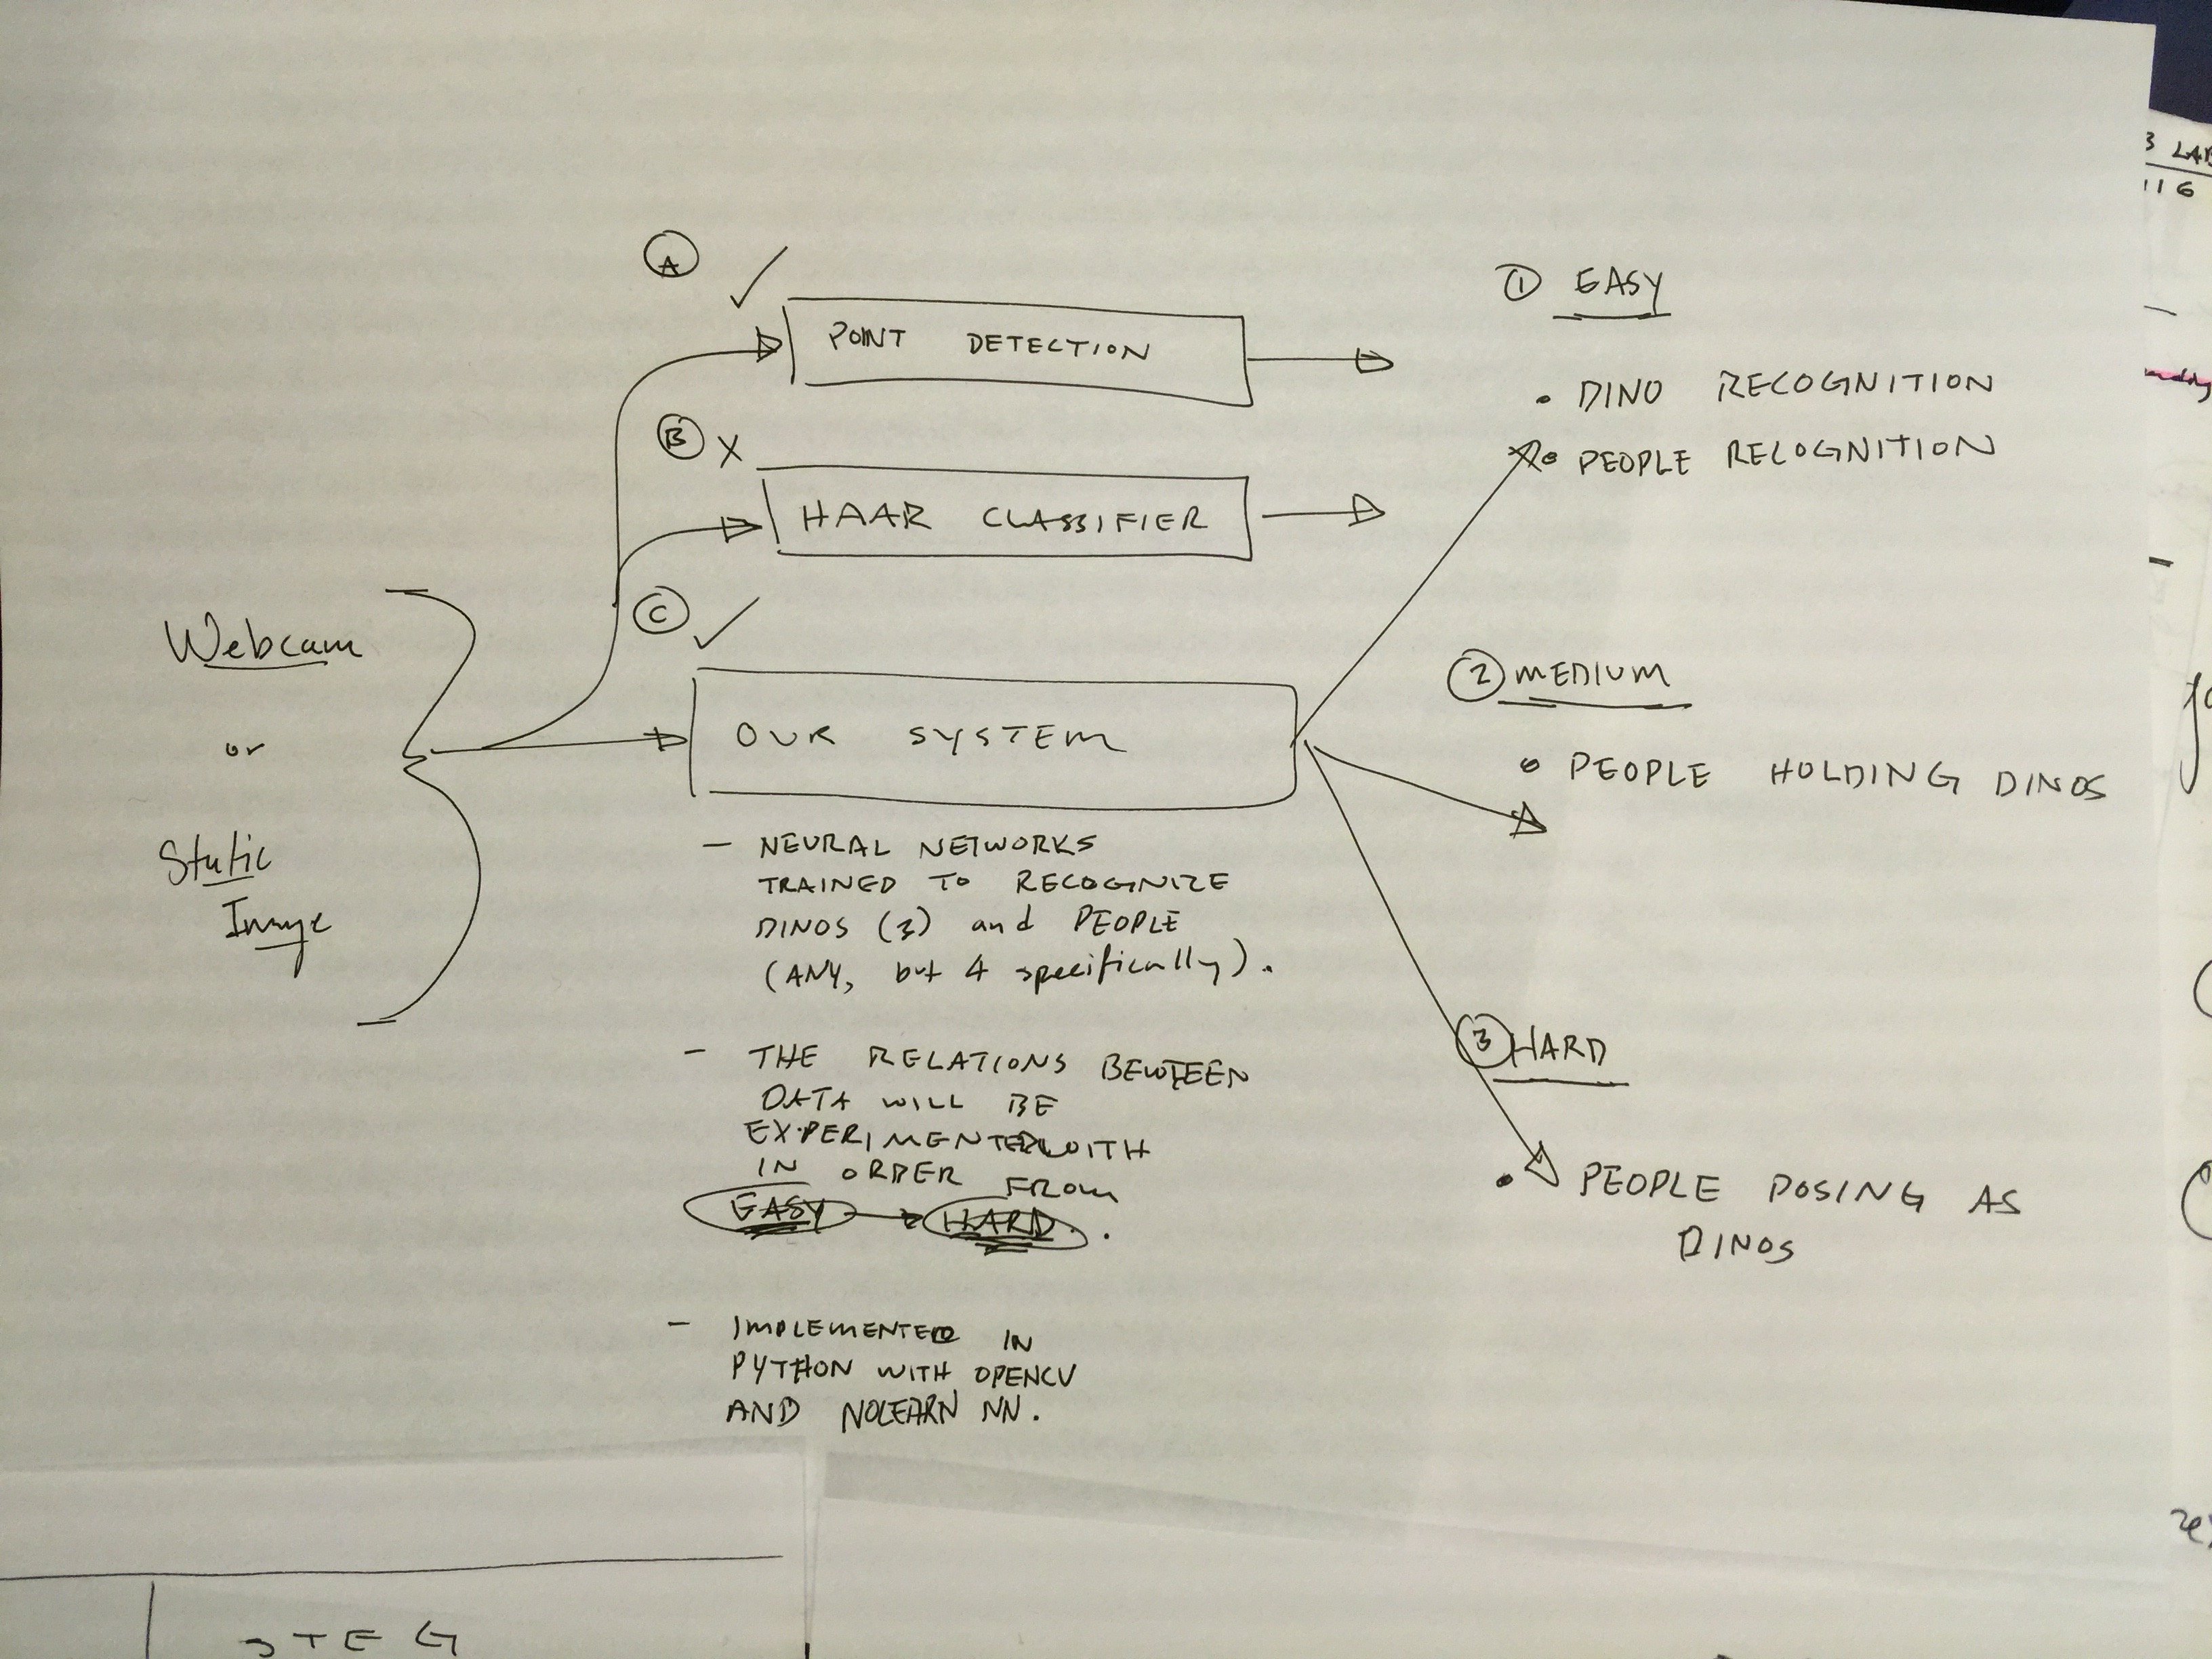 A ✓
POINT DETECTION
B X
HAAR CLASSIFIER
C ✓
OUR SYSTEM
Webcam
or
Static
Image
- NEURAL NETWORKS
TRAINED TO RECOGNIZE
DINOS (3) and PEOPLE
(ANY, but 4 specifically).
- THE RELATIONS BEWTEEN
DATA WILL BE
EXPERIMENTED WITH
IN ORDER FROM
EASY → HARD.
- IMPLEMENTED IN
PYTHON WITH OPENCV
AND NOLEARN NN.
1 EASY
• DINO RECOGNITION
• PEOPLE RECOGNITION
2 MEDIUM
• PEOPLE HOLDING DINOS
3 HARD
• PEOPLE POSING AS
DINOS
116